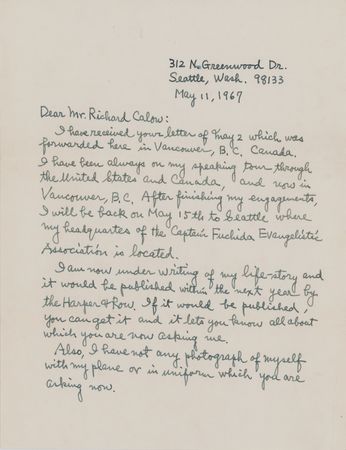 312 N. Greenwood Dr.
Seattle, Wash. 98133
May 11, 1967
Dear Mr. Richard Calow:
I have received your letter of May 2 which was
forwarded here in Vancouver, B.C. Canada.
I have been always on my speaking tour through
the United States and Canada, and now in
Vancouver, B.C. After finishing my engagements,
I will be back on May 15th to Seattle where
my headquartes of the Captain Fuchida Evangelistic
Association is located.
I am now under writing of my life-story and
it would be published within the next year by
the Harper & Row. If it would be published,
you can get it and it lets you know all about
which you are now asking me.
Also, I have not any photograph of myself
with my plane or in uniform which you are
asking now.